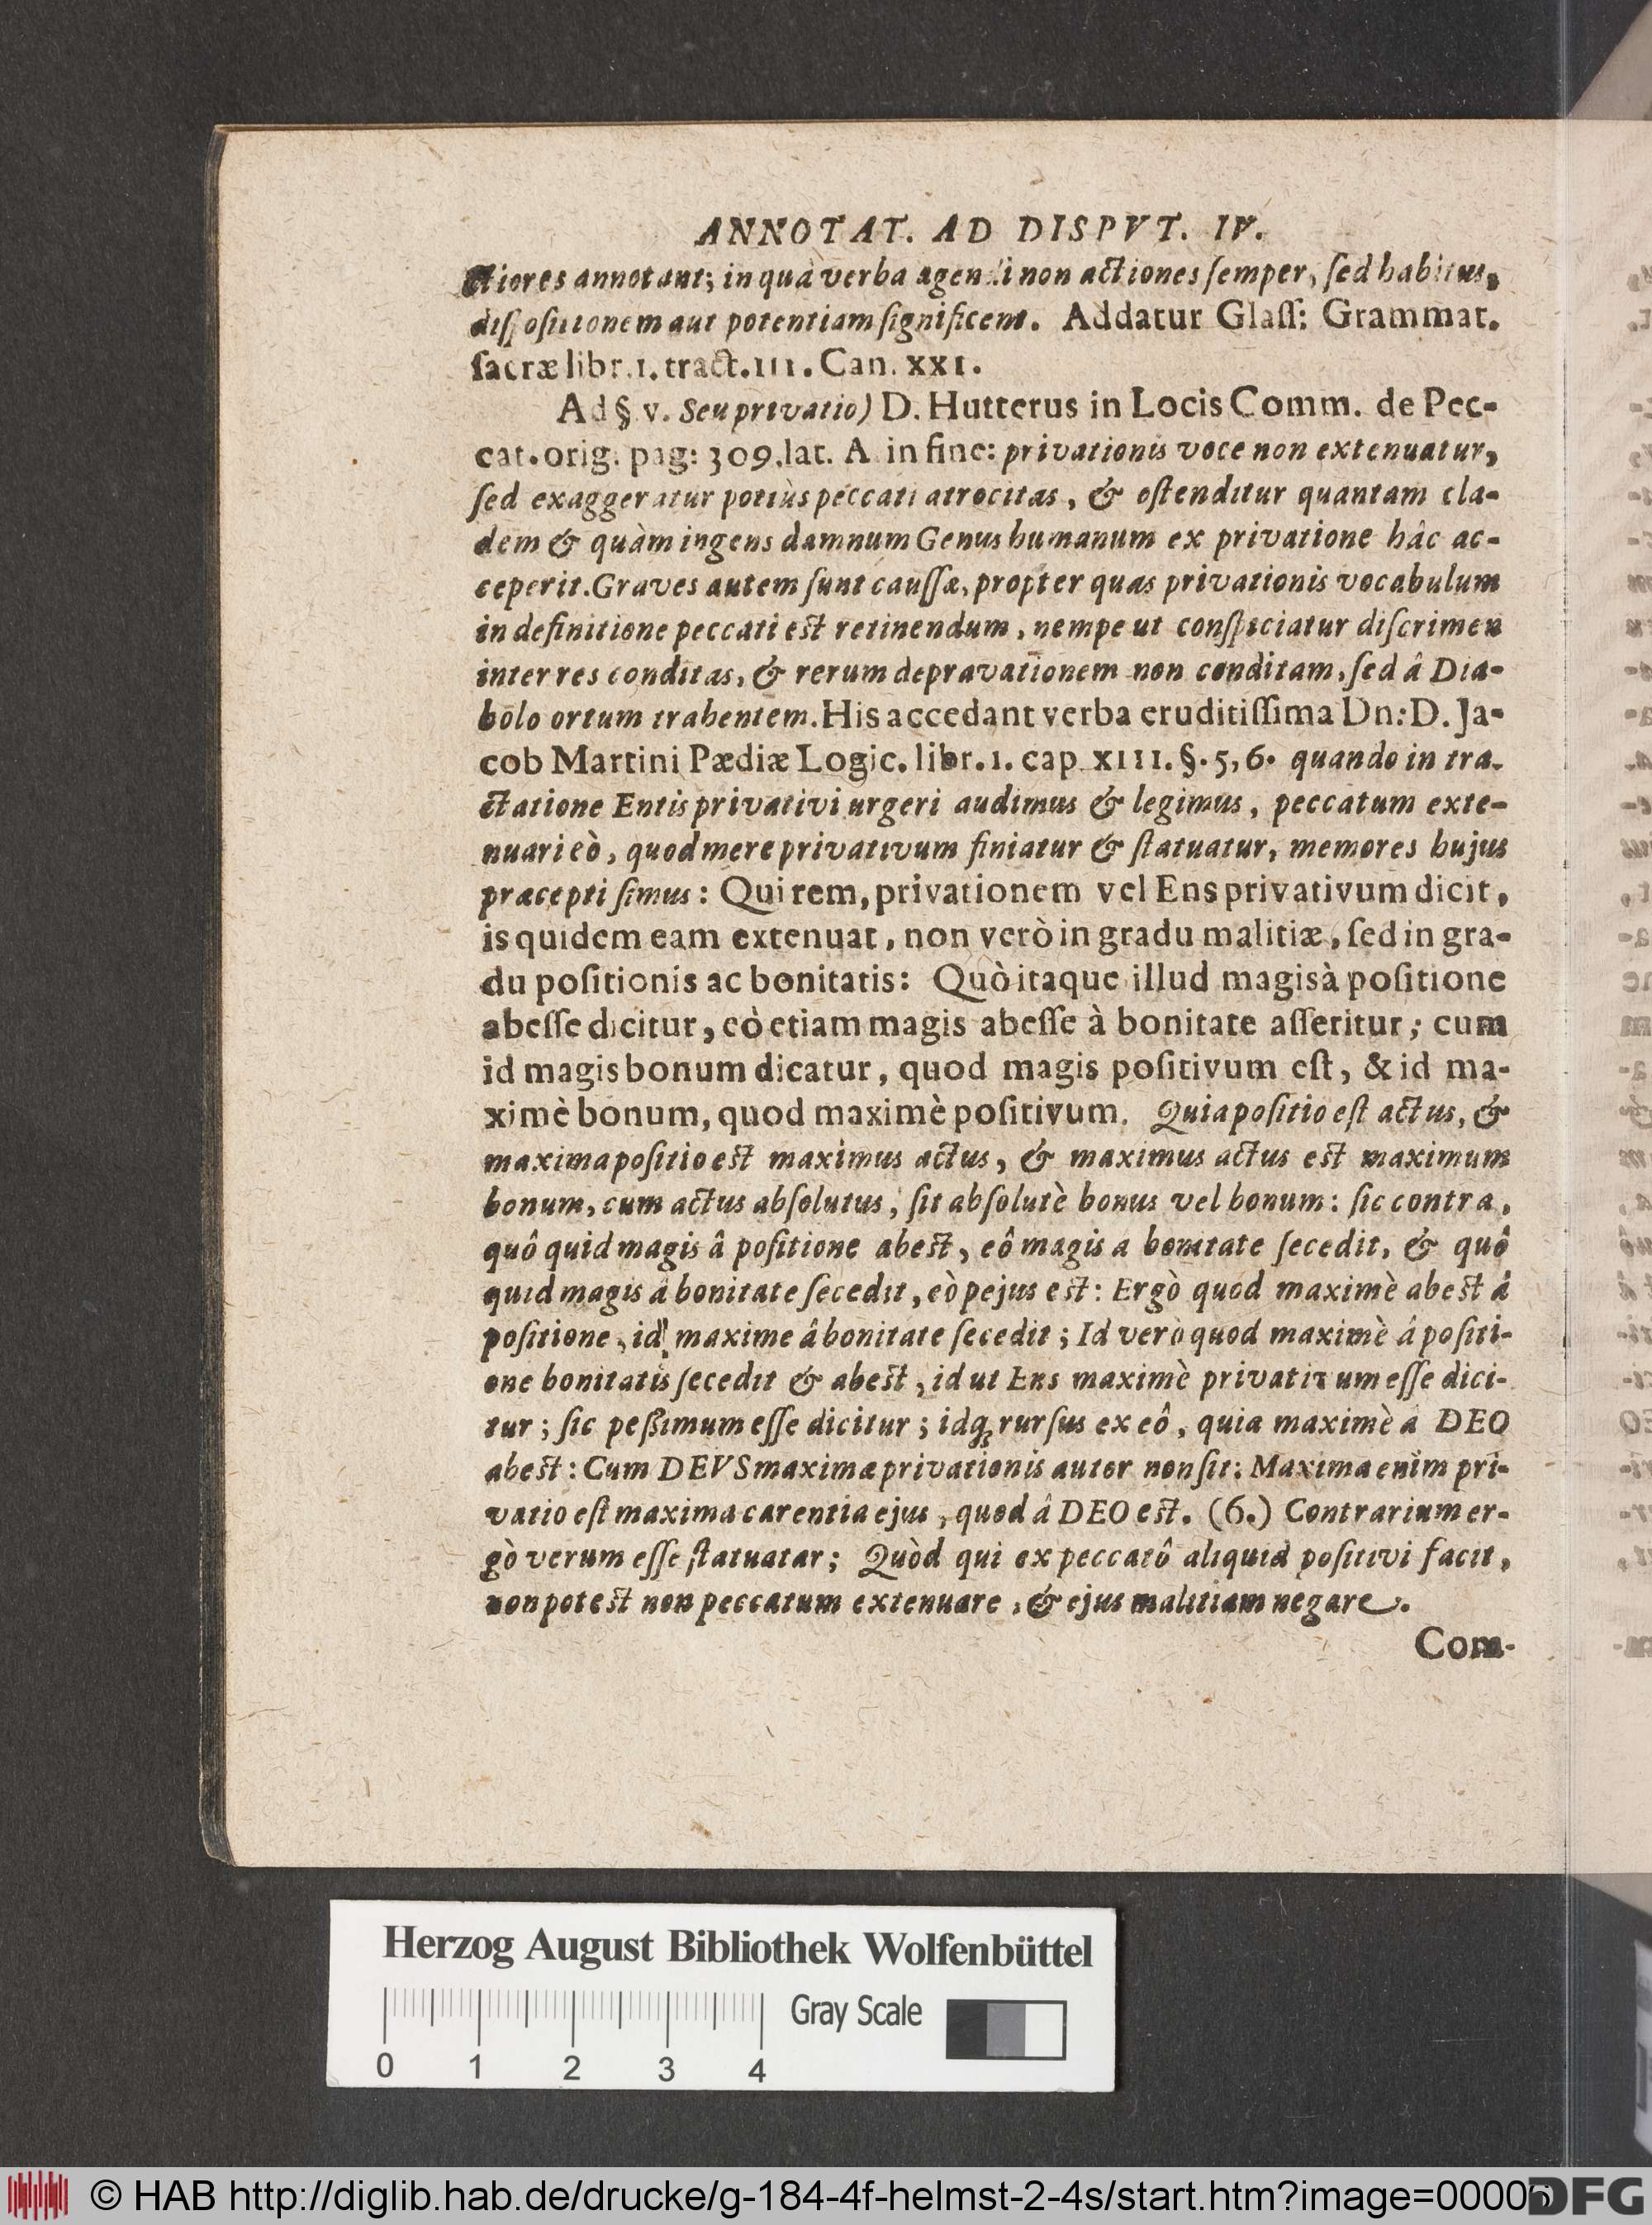 ANNOTAT. AD DISPVT. IV.
ctiores annotant; in quâ verba agendi non actiones ſemper, ſed habitus,
diſpoſitionem aut potentiam ſignificent. Addatur Glaſſ: Grammat.
ſacræ libr. I. tract. III. Can. XXI.
Ad § v. Seu privatio) D. Hutterus in Locis Comm. de Pec-
cat. orig. pag: 309. lat. A in fine: privationis voce non extenuatur,
ſed exaggeratur potiùs peccati atrocitas, & oſtenditur quantam cla-
dem & quàm ingens damnum Genus humanum ex privatione hâc ac-
ceperit. Graves autem ſunt cauſſæ, propter quas privationis vocabulum
in definitione peccati est retinendum, nempe ut conſpiciatur diſcrimen
inter res conditas, & rerum depravationem non conditam, ſed â Dia-
bolo ortum trahentem. His accedant verba eruditiſſima Dn: D. Ja-
cob Martini Pædiæ Logic. libr. I. cap XIII. §. 5, 6. quando in tra-
ctatione Entis privativi urgeri audimus & legimus, peccatum exte-
nuari eò, quod mere privativum finiatur & ſtatuatur, memores hujus
præcepti ſimus: Qui rem, privationem vel Ens privativum dicit,
is quidem eam extenuat, non verò in gradu malitiæ, ſed in gra-
du poſitionis ac bonitatis: Quò itaque illud magis à poſitione
abeſſe dicitur, eò etiam magis abeſſe à bonitate aſſeritur; cum
id magis bonum dicatur, quod magis poſitivum eſt, & id ma-
ximè bonum, quod maximè poſitivum. Quia poſitio eſt actus, &
maxima poſitio est maximus actus, & maximus actus est maximum
bonum, cum actus abſolutus, ſit abſolutè bonus vel bonum: ſic contra,
quô quid magis â poſitione abest, eô magis a bonitate ſecedit, & quô
quid magis â bonitate ſecedit, eò pejus est: Ergò quod maximè abest â
poſitione, id maxime â bonitate ſecedit; Id verò quod maximè â poſiti-
one bonitatis ſecedit & abest, id ut Ens maximè privativum eſſe dici-
tur; ſic peßimum eſſe dicitur; idq; rurſus ex eô, quia maximè â DEO
abest: Cum DEVS maximæ privationis autor non ſit: Maxima enim pri-
vatio eſt maxima carentia ejus, quod â DEO est. (6.) Contrarium er-
gò verum eſſe ſtatuatar; Quòd qui ex peccatô aliquid poſitivi facit,
non potest non peccatum extenuare, & ejus malitiam negare.
Com-
Herzog August Bibliothek Wolfenbüttel
Gray Scale
0 1 2 3 4
© HAB http://diglib.hab.de/drucke/g-184-4f-helmst-2-4s/start.htm?image=00005
DFG